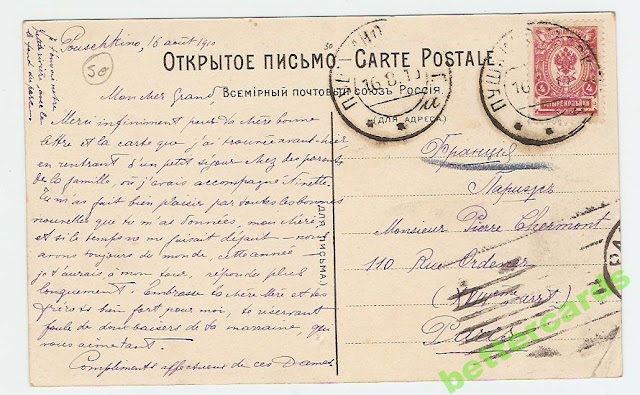 Pouschkino, 16 août 1910
50
30
ОТКРЫТОЕ ПИСЬМО.–CARTE POSTALE.
Всемірный почтовый союзъ Россія.
(ДЛЯ АДРЕСА)
(ДЛЯ ПИСЬМА)
Mon cher Grand,
Merci infiniment pour ta chère bonne
lettre et la carte que j'ai trouvée avant-hier
en rentrant d'un petit séjour chez des parents
de la famille, où j'avais accompagné Ninette.
Tu m'as fait bien plaisir par toutes les bonnes
nouvelles que tu m'as données, mon chéri
et si le temps ne me faisait défaut – nous
avons toujours du monde, cette année –
je t'aurais à mon tour, répondu plus
longuement. Embrasse ta chère Mère et tes
frères bien fort pour moi, te réservant
foule de doux baisers de ta marraine, qui
vous aime tant.
Compliments affectueux de ces Dames
Франція
Парижъ
Monsieur Pierre Chermont
110 Rue Ordener
Paris
16.8.10
4
bettercards